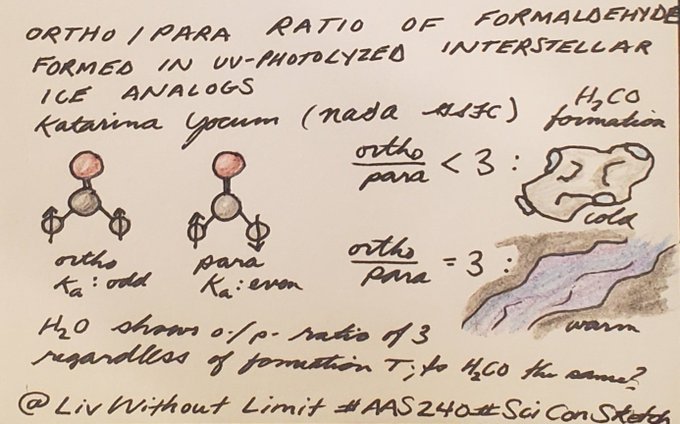 ORTHO / PARA RATIO OF FORMALDEHYDE
FORMED IN UV-PHOTOLYZED INTERSTELLAR
ICE ANALOGS
Katarina Yocum (nasa GSFC)
H₂CO
formation
ortho
para
< 3 :
cold
ortho
Kₐ : odd
para
Kₐ : even
ortho
para
= 3 :
warm
H₂O shows o-/p- ratio of 3
regardless of formation T; is H₂CO the same?
@LivWithoutLimit #AAS240 #SciConSketch